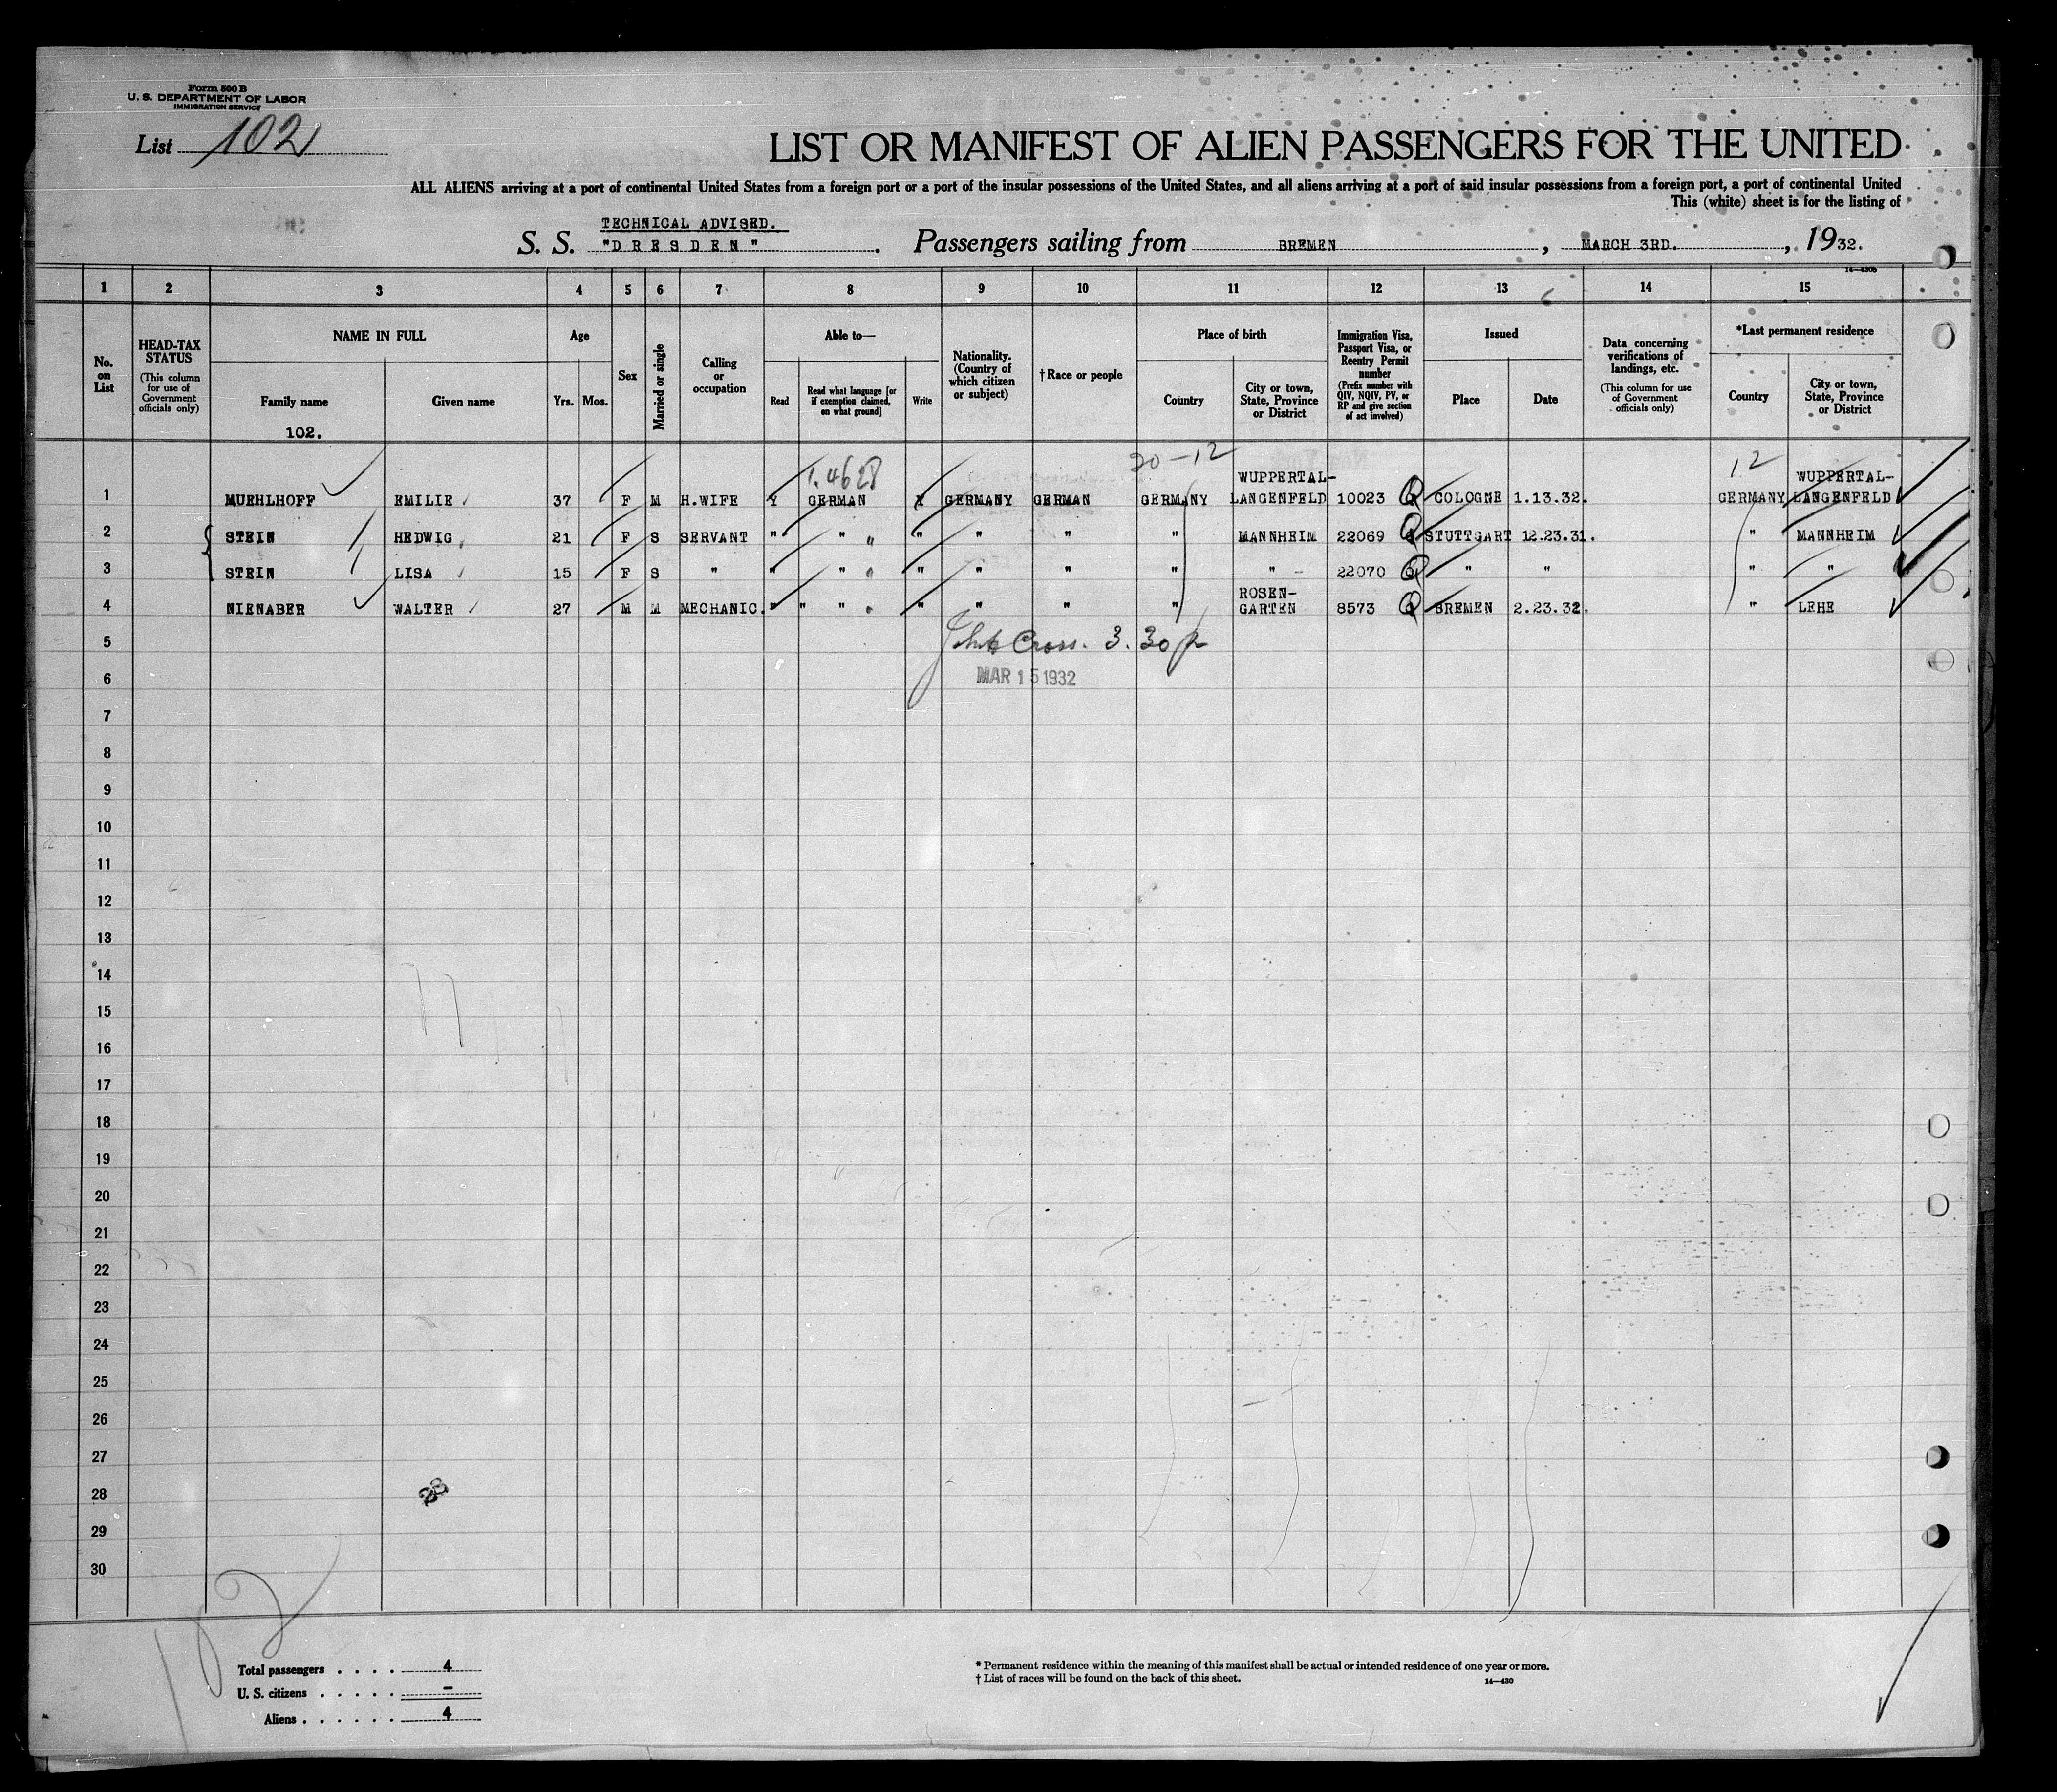 Form 500 B
U. S. DEPARTMENT OF LABOR
IMMIGRATION SERVICE
List 102
LIST OR MANIFEST OF ALIEN PASSENGERS FOR THE UNITED
ALL ALIENS arriving at a port of continental United States from a foreign port or a port of the insular possessions of the United States, and all aliens arriving at a port of said insular possessions from a foreign port, a port of continental United
This (white) sheet is for the listing of
TECHNICAL ADVISED.
S. S. "D R E S D E N". Passengers sailing from BREMEN, MARCH 3RD., 1932.
14—430b
1 2 3 4 5 6 7 8 9 10 11 12 13 14 15
No. on List
HEAD-TAX STATUS (This column for use of Government officials only)
NAME IN FULL
Family name
Given name
102.
Age
Yrs. Mos.
Sex
Married or single
Calling or occupation
Able to—
Read
Read what language [or if exemption claimed, on what ground]
Write
Nationality. (Country of which citizen or subject)
† Race or people
Place of birth
Country
City or town, State, Province or District
Immigration Visa, Passport Visa, or Reentry Permit number (Prefix number with QIV, NQIV, PV, or RP and give section of act involved)
Issued
Place
Date
Data concerning verifications of landings, etc. (This column for use of Government officials only)
*Last permanent residence
Country
City or town, State, Province or District
1.4628 20-12 12
WUPPERTAL- WUPPERTAL-
1 MUEHLHOFF EMILIE 37 F M H.WIFE Y GERMAN Y GERMANY GERMAN GERMANY LANGENFELD 10023 Q COLOGNE 1.13.32. GERMANY LANGENFELD
2 STEIN HEDWIG 21 F S SERVANT " " " " " " " MANNHEIM 22069 Q STUTTGART 12.23.31. " MANNHEIM
3 STEIN LISA 15 F S " " " " " " " " 22070 Q " " " "
ROSEN-
4 NIENABER WALTER 27 M M MECHANIC. " " " " " " " GARTEN 8573 Q BREMEN 2.23.32. " LEHE
5 Cross. 3.30 p
6 MAR 15 1932
7
8
9
10
11
12
13
14
15
16
17
18
19
20
21
22
23
24
25
26
27
28
29
30
102
Total passengers . . . . 4
U. S. citizens . . . . . –
Aliens . . . . . . 4
* Permanent residence within the meaning of this manifest shall be actual or intended residence of one year or more.
† List of races will be found on the back of this sheet.
14—430